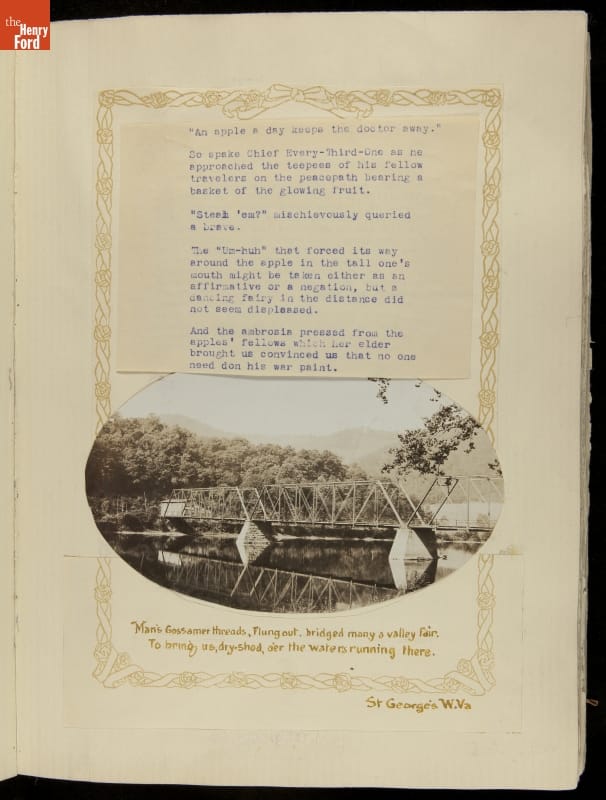 the
Henry
Ford
"An apple a day keeps the doctor away."
So spake Chief Every-Third-One as he
approached the teepees of his fellow
travelers on the peacepath bearing a
basket of the glowing fruit.
"Steal 'em?" mischievously queried
a brave.
The "Um-huh" that forced its way
around the apple in the tall one's
mouth might be taken either as an
affirmative or a negation, but a
dancing fairy in the distance did
not seem displeased.
And the ambrosia pressed from the
apples' fellows which her elder
brought us convinced us that no one
need don his war paint.
Man's Gossamer threads, flung out, bridged many a valley fair.
To bring us, dry-shod, o'er the waters running there.
St George's W.Va